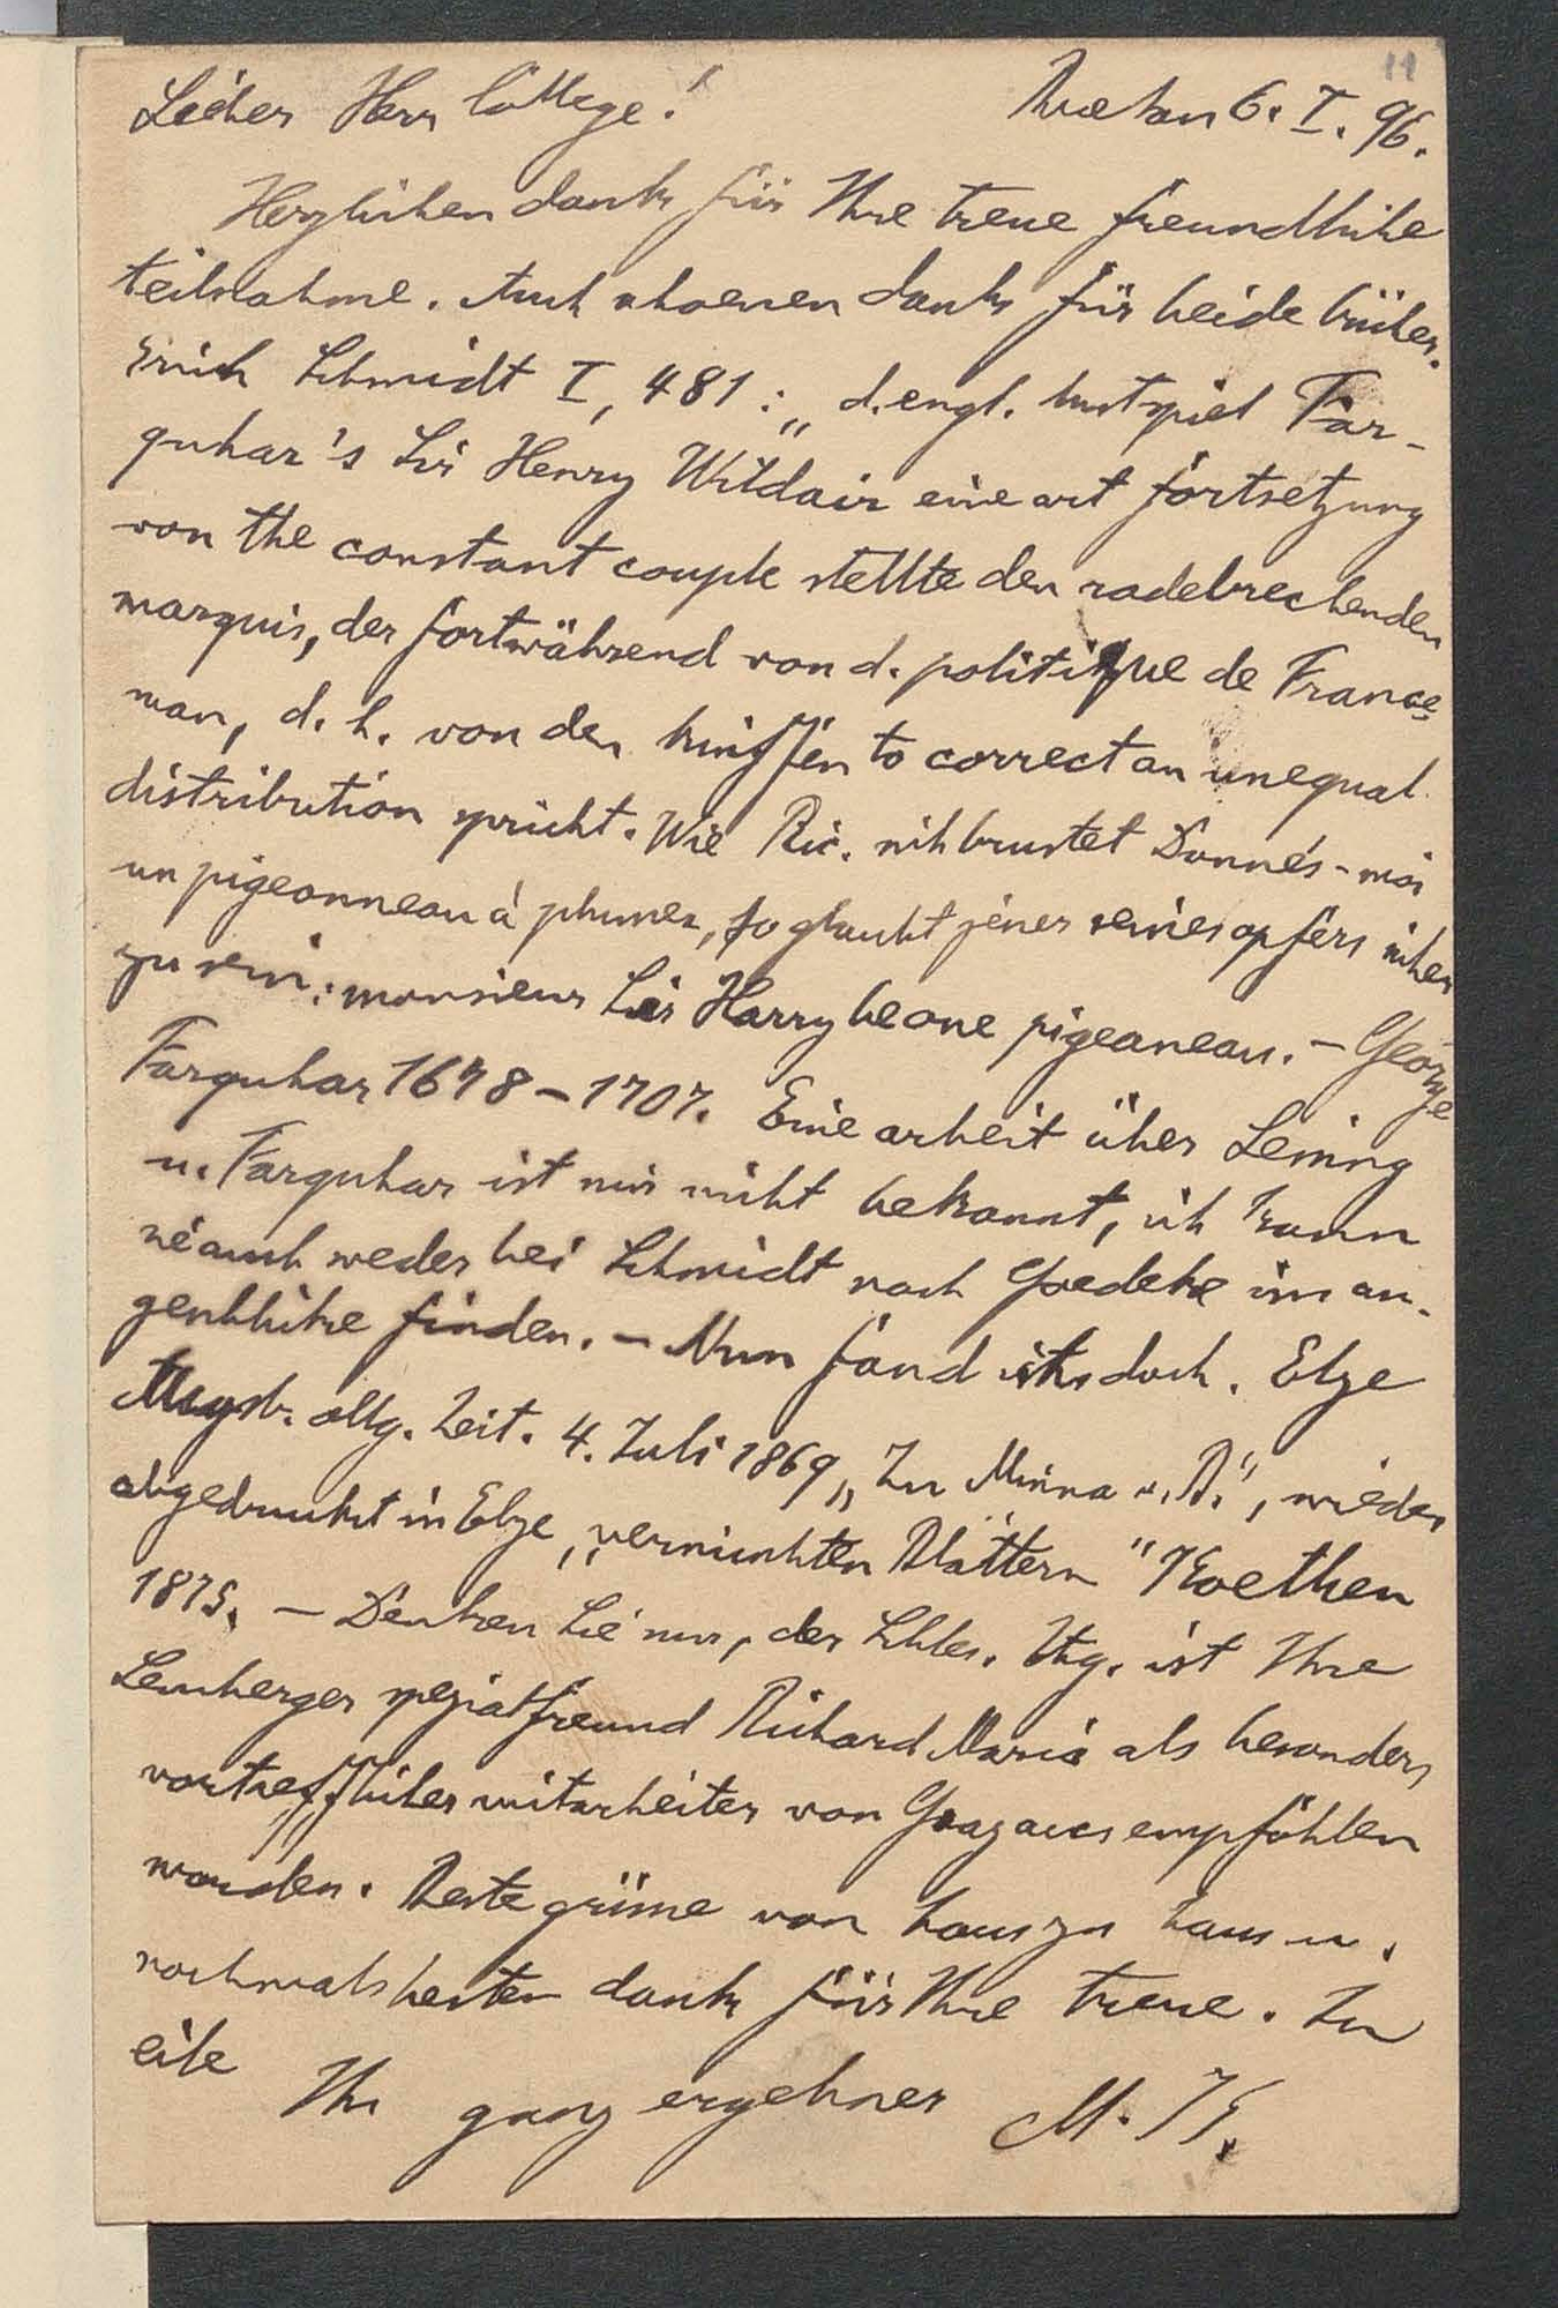 11
Lieber Herr College! Breslau 6. I. 96.
Herzlichen dank für Ihre treue freundliche
teilnahme. Auch schoenen dank für beide bücher.
Erich Schmidt I, 481: „d. engl. lustspiel Far-
quhar's Sir Henry Wildair eine art fortsetzung
von the constant couple stellte den radebrechenden
marquis, der fortwährend von d. politique de France
man, d. h. von den kniffen to correct an unequal
distribution spricht. Wie Ric. sich brustet Donnés-moi
un pigeonneau à plumer, so glaubt jener seines opfers sicher
zu sein: monsieur Sir Harry be one pigeaneau. – George
Farquhar 1678–1707. Eine arbeit über Lessing
u. Farquhar ist mir nicht bekannt, ich kann
sie auch weder bei Schmidt noch Goedeke im au-
genblicke finden. – Nun fand ichs doch. Elze
Augsb. allg. Zeit. 4. Juli 1869 „Zu Minna v. B.", wieder
abgedruckt in Elze, „vermischten Blättern" Koethen
1875. – Denken Sie nur, der Schles. Ztg. ist Ihre
Lemberger spezialfreund Richard Maria als besonders
vortrefflicher mitarbeiter von Graz aus empfohlen
worden. Beste grüsse von haus zu haus u.
nochmals besten dank für Ihre treue. In
eile Ihr ganz ergebner M. K.